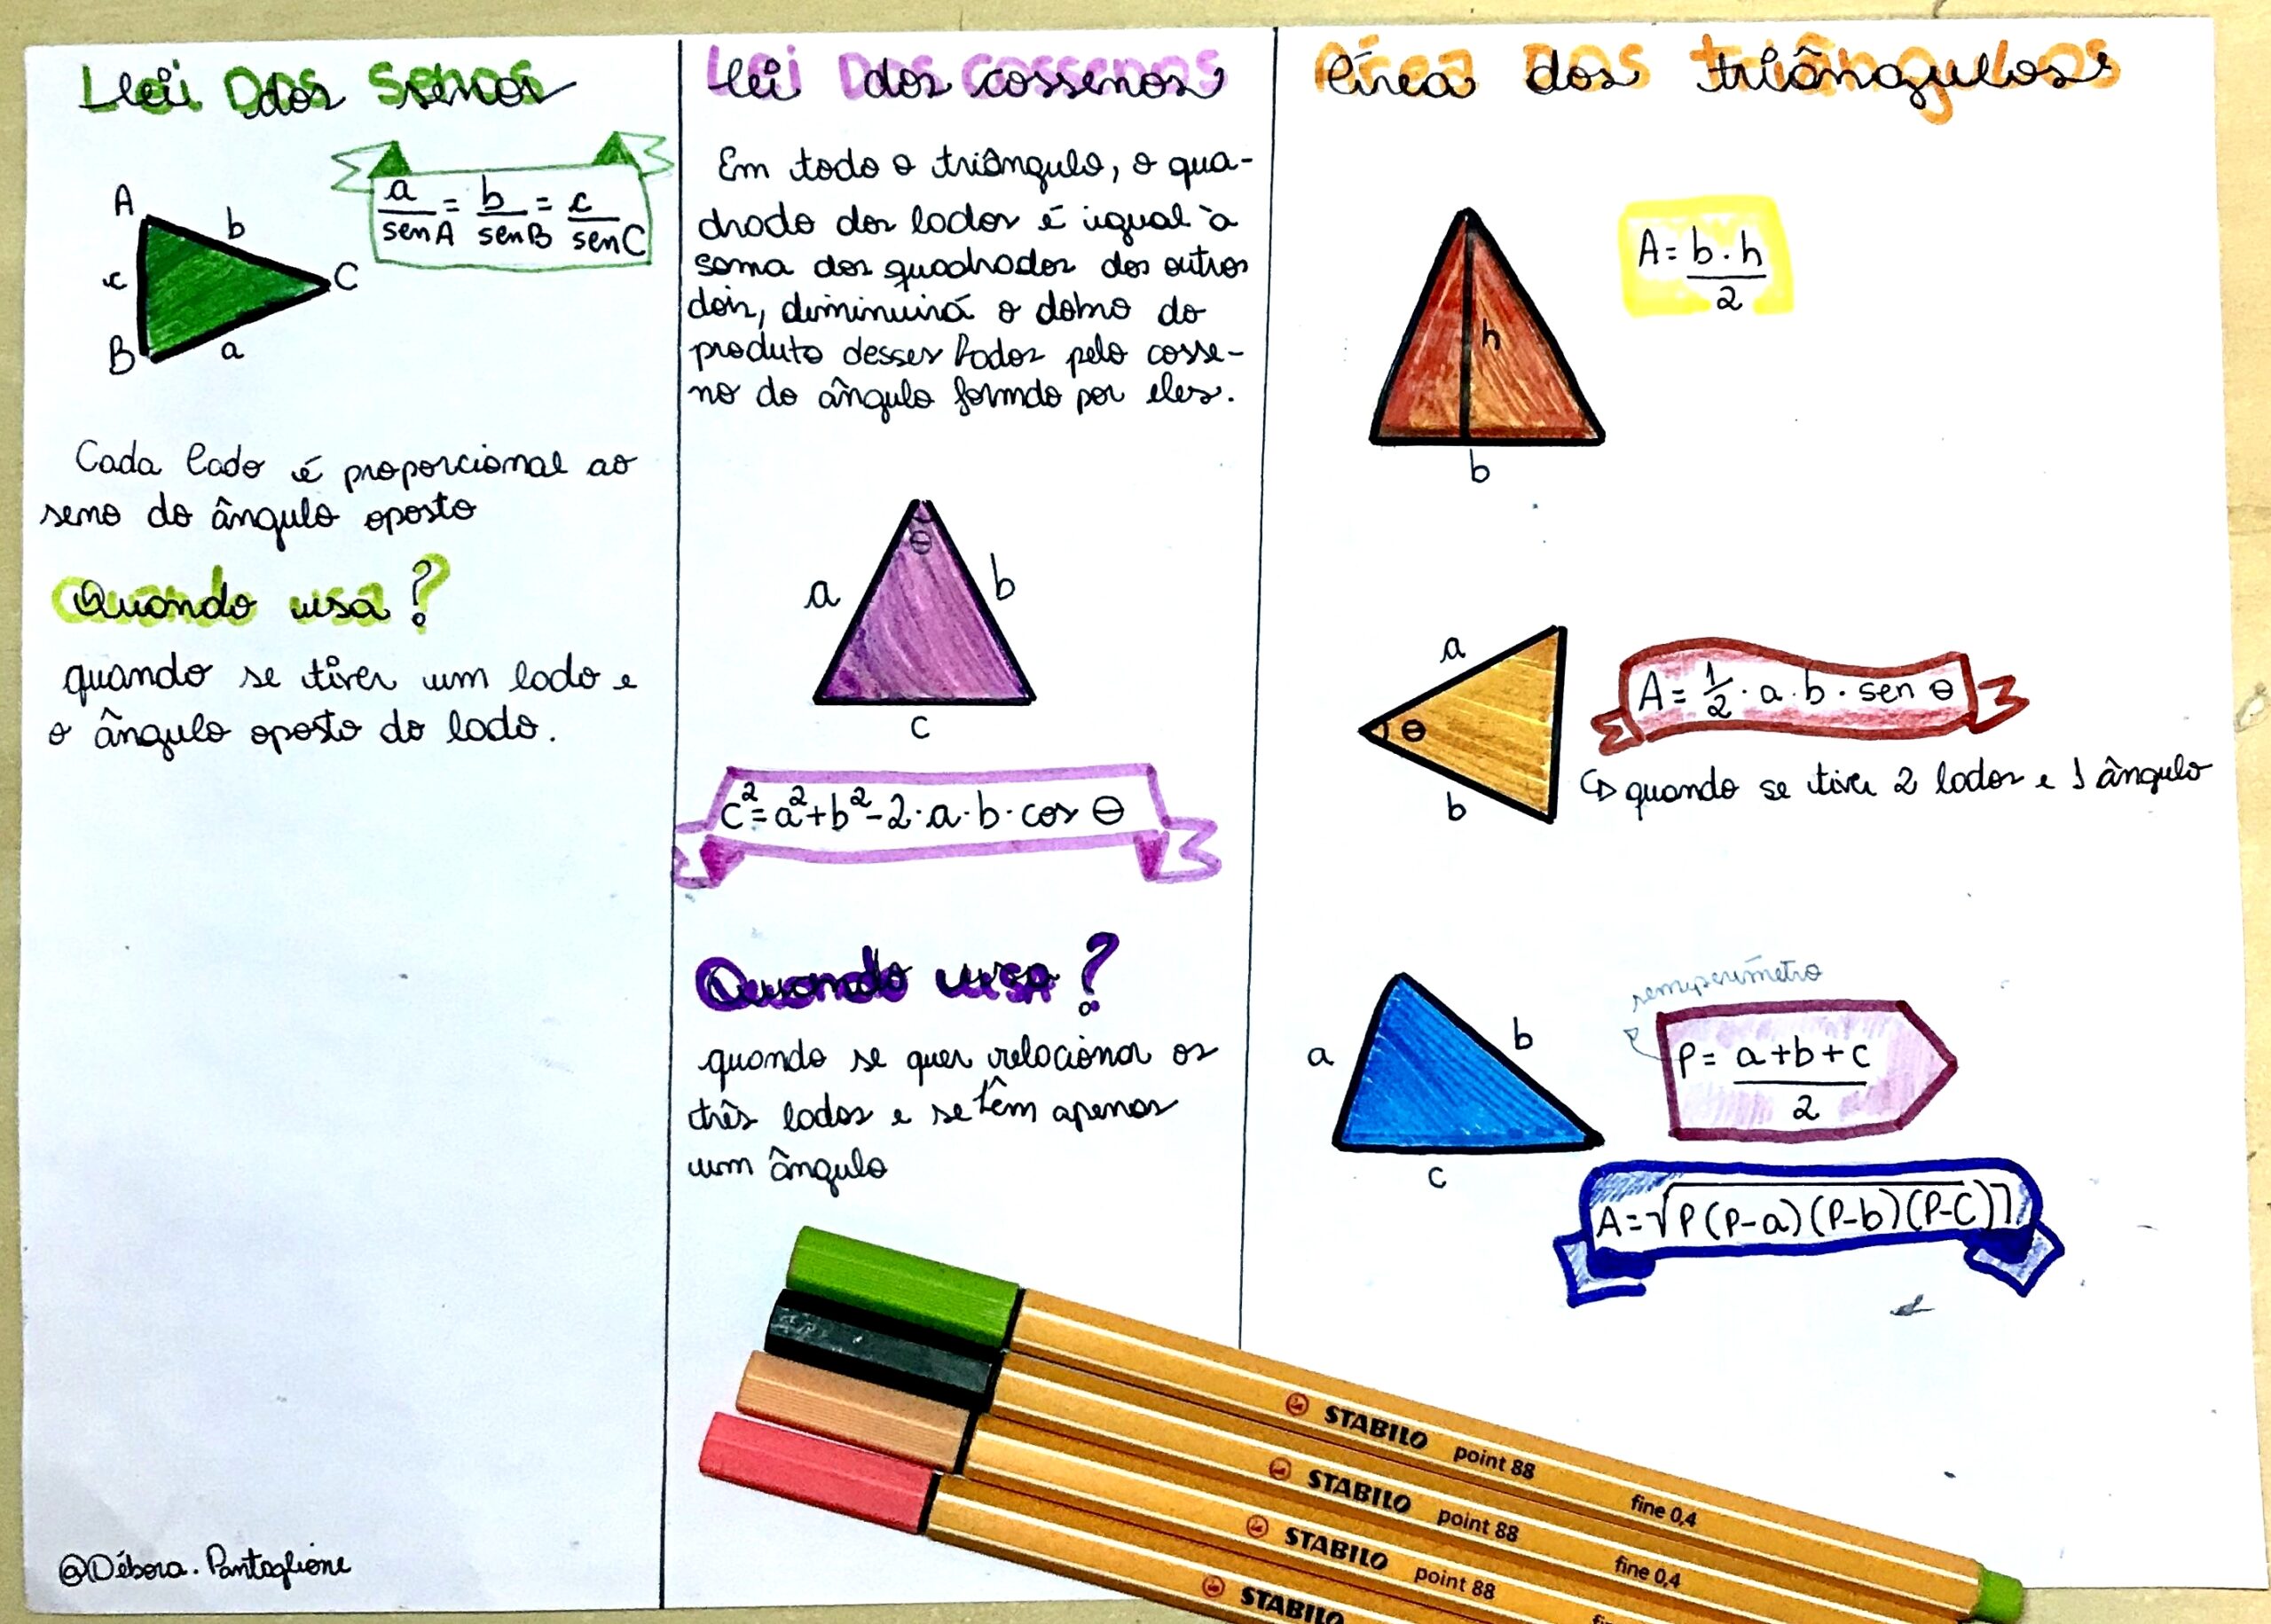 Lei dos senos
A
b
c
C
B
a
a/senA = b/senB = c/senC
Cada lado é proporcional ao
seno do ângulo oposto
Quando usa?
quando se tiver um lado e
o ângulo oposto do lado.
@Débora.Pantaglione
Lei dos cossenos
Em todo o triângulo, o qua-
drado dos lados é igual à
soma dos quadrados dos outros
dois, diminuirá o dobro do
produto desses lados pelo cosse-
no do ângulo formdo por eles.
θ
a
b
c
c²=a²+b²-2·a·b·cos θ
Quando usa?
quando se quer relacionar os
três lados e se têm apenas
um ângulo
Área dos triângulos
h
b
A= b·h/2
a
θ
b
A= 1/2·a·b·sen θ
↳ quando se tiver 2 lados e 1 ângulo
a
b
c
semiperímetro
P= a+b+c/2
A=√P(P-a)(P-b)(P-C)
STABILO point 88 fine 0,4
STABILO point 88 fine 0,4
STABILO point 88
STABILO